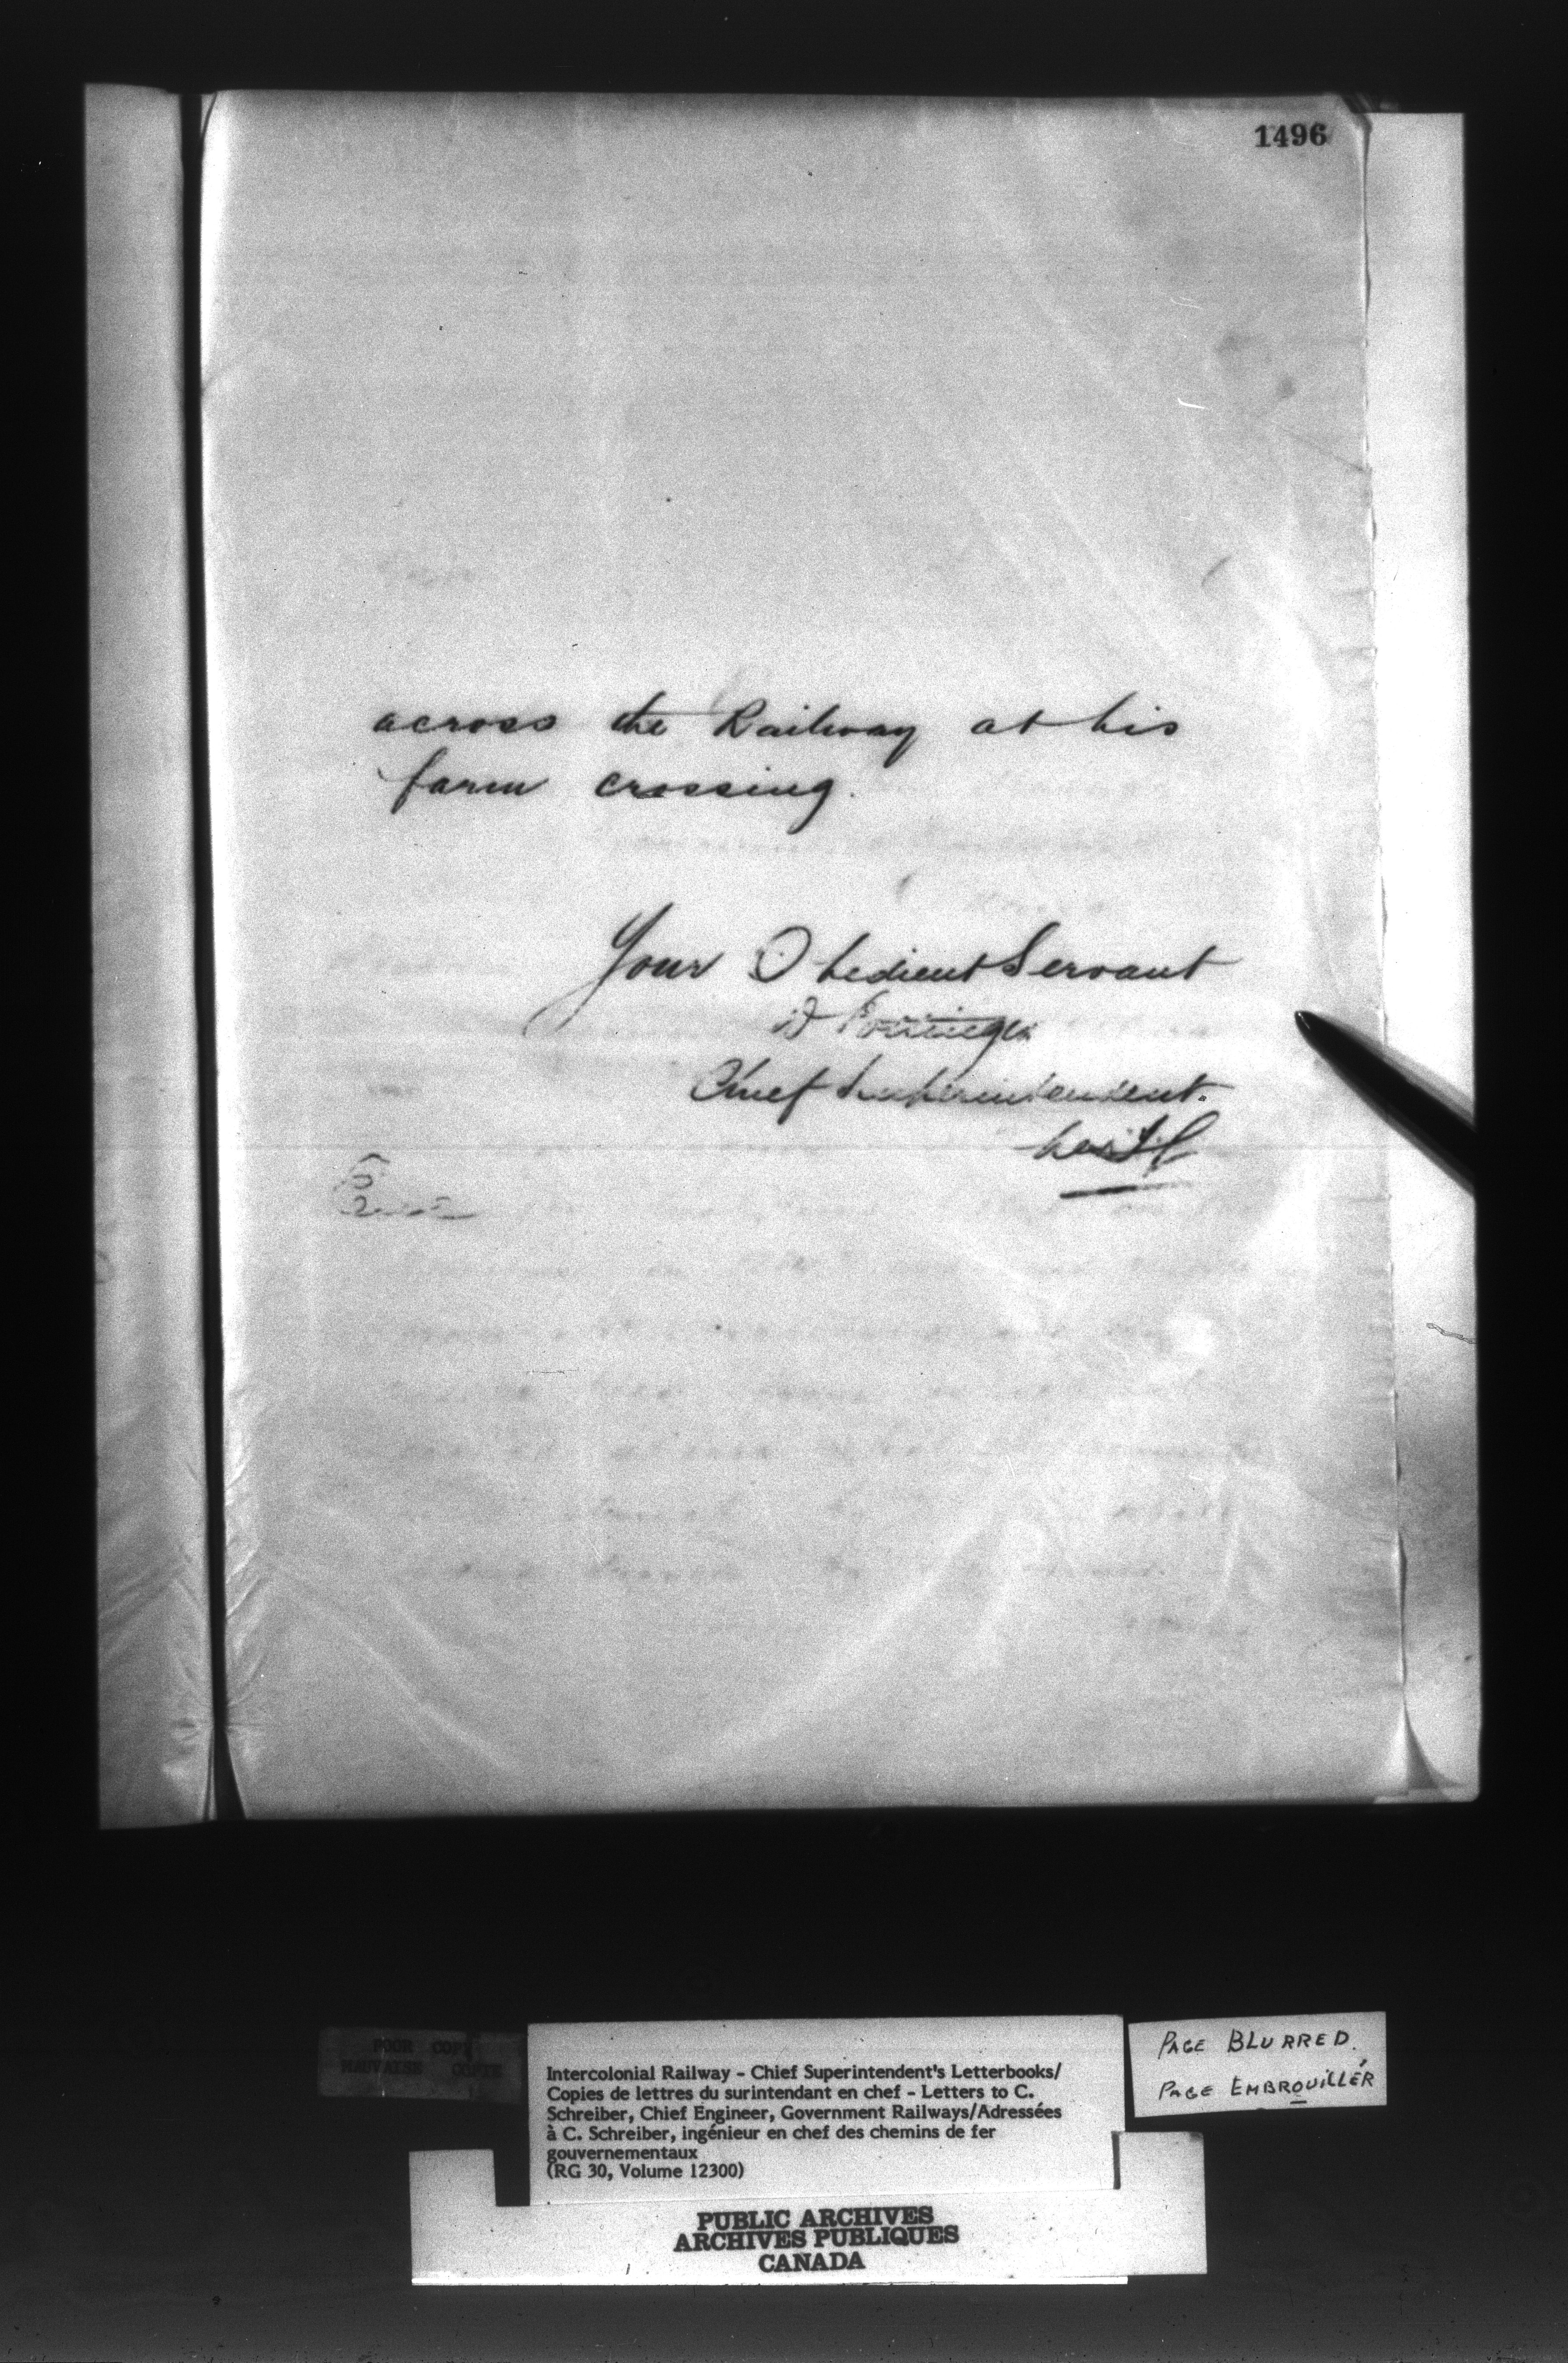 1496
across the Railway at his
farm crossing.
Your Obedient Servant
D Pottinger
Chief Superintendent.
POOR COPY
MAUVAISE COPIE
Intercolonial Railway - Chief Superintendent's Letterbooks/
Copies de lettres du surintendant en chef - Letters to C.
Schreiber, Chief Engineer, Government Railways/Adressées
à C. Schreiber, ingénieur en chef des chemins de fer
gouvernementaux
(RG 30, Volume 12300)
PAGE BLURRED.
PAGE EMBROUILLÉR
PUBLIC ARCHIVES
ARCHIVES PUBLIQUES
CANADA